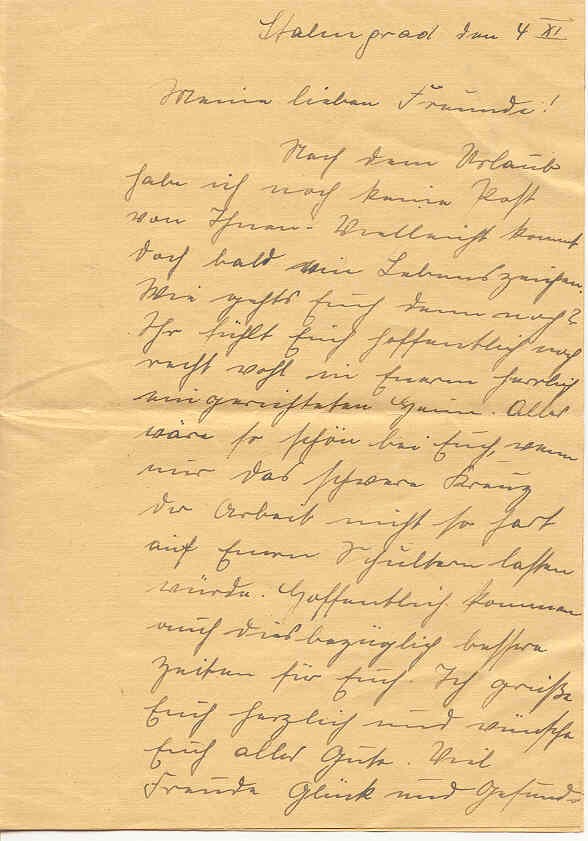 Stalingrad den 4 XI
Meine lieben Freunde!
Nach dem Urlaub
habe ich noch keine Post
von Ihnen. Vielleicht kommt
doch bald ein Lebenszeichen.
Wie gehts Euch denn noch?
Ihr fühlt Euch hoffentlich noch
recht wohl in Eueren herrlich
eingerichteten Heim. Alles
wäre so schön bei Euch, wenn
nur das schwere Kreuz
der Arbeit nicht so hart
auf Euern Schultern lasten
würde. Hoffentlich kommen
auch diesbezüglich bessere
Zeiten für Euch. Ich grüße
Euch herzlich und wünsche
Euch alles Gute. Viel
Freude Glück und Gesund-